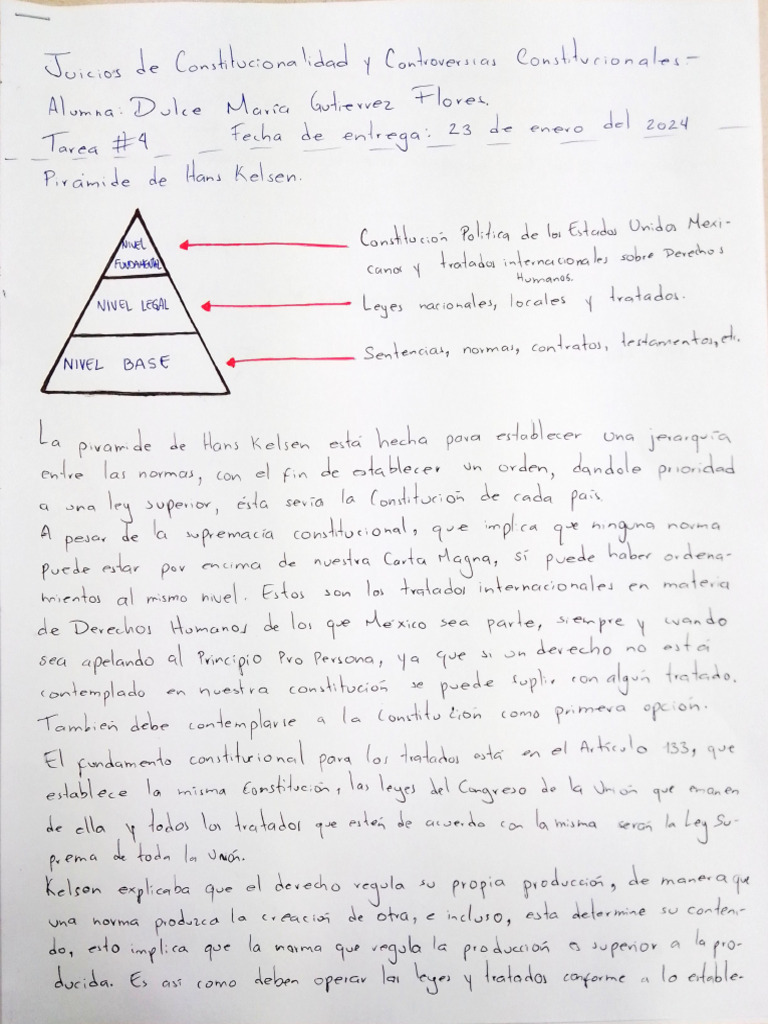 Juicios de Constitucionalidad y Controversias Constitucionales.-
Alumna: Dulce María Gutierrez Flores.
Tarea #4 Fecha de entrega: 23 de enero del 2024
Pirámide de Hans Kelsen.
NIVEL FUNDAMENTAL
Constitución Política de los Estados Unidos Mexi-
canos y tratados internacionales sobre Derechos
Humanos.
NIVEL LEGAL
Leyes nacionales, locales y tratados.
NIVEL BASE
Sentencias, normas, contratos, testamentos, etc.
La piramide de Hans Kelsen está hecha para establecer una jerarquía
entre las normas, con el fin de establecer un orden, dandole prioridad
a una ley superior, ésta sería la Constitución de cada país.
A pesar de la supremacía constitucional, que implica que ninguna norma
puede estar por encima de nuestra Carta Magna, sí puede haber ordena-
mientos al mismo nivel. Estos son los tratados internacionales en materia
de Derechos Humanos de los que México sea parte, siempre y cuando
sea apelando al Principio Pro Persona, ya que si un derecho no está
contemplado en nuestra constitución se puede suplir con algún tratado.
También debe contemplarse a la Constitución como primera opción.
El fundamento constitucional para los tratados está en el Artículo 133, que
establece la misma Constitución, las leyes del Congreso de la Unión que emanen
de ella y todos los tratados que estén de acuerdo con la misma serán la Ley Su-
prema de toda la Unión.
Kelsen explicaba que el derecho regula su propia producción, de manera que
una norma produzca la creación de otra, e incluso, esta determine su conteni-
do, esto implica que la norma que regula la producción es superior a la pro-
ducida. Es así como deben operar las leyes y tratados conforme a lo estable-